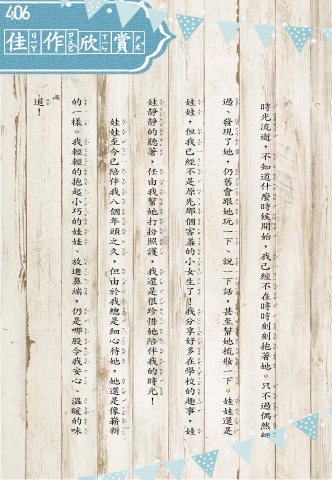 406
佳作欣賞
時光流逝，不知道什麼時候開始，我已經不在時時刻刻抱著她。只不過偶然
過、發現了她，仍舊會跟她玩一下、說一下話，甚至幫她梳妝一下。娃娃還是
娃娃，但我已經不是原先那個害羞的小女生了！我分享好多在學校的趣事，娃
娃靜靜的聽著，任由我幫她打扮照護，我還是很珍惜她陪伴我的時光！
娃娃至今已陪伴我八個年頭之久，但由於我總是細心待她，她還是像嶄新
的一樣。我輕輕的抱起小巧的娃娃、放進鼻端，仍是哪股令我安心、溫暖的味
道！